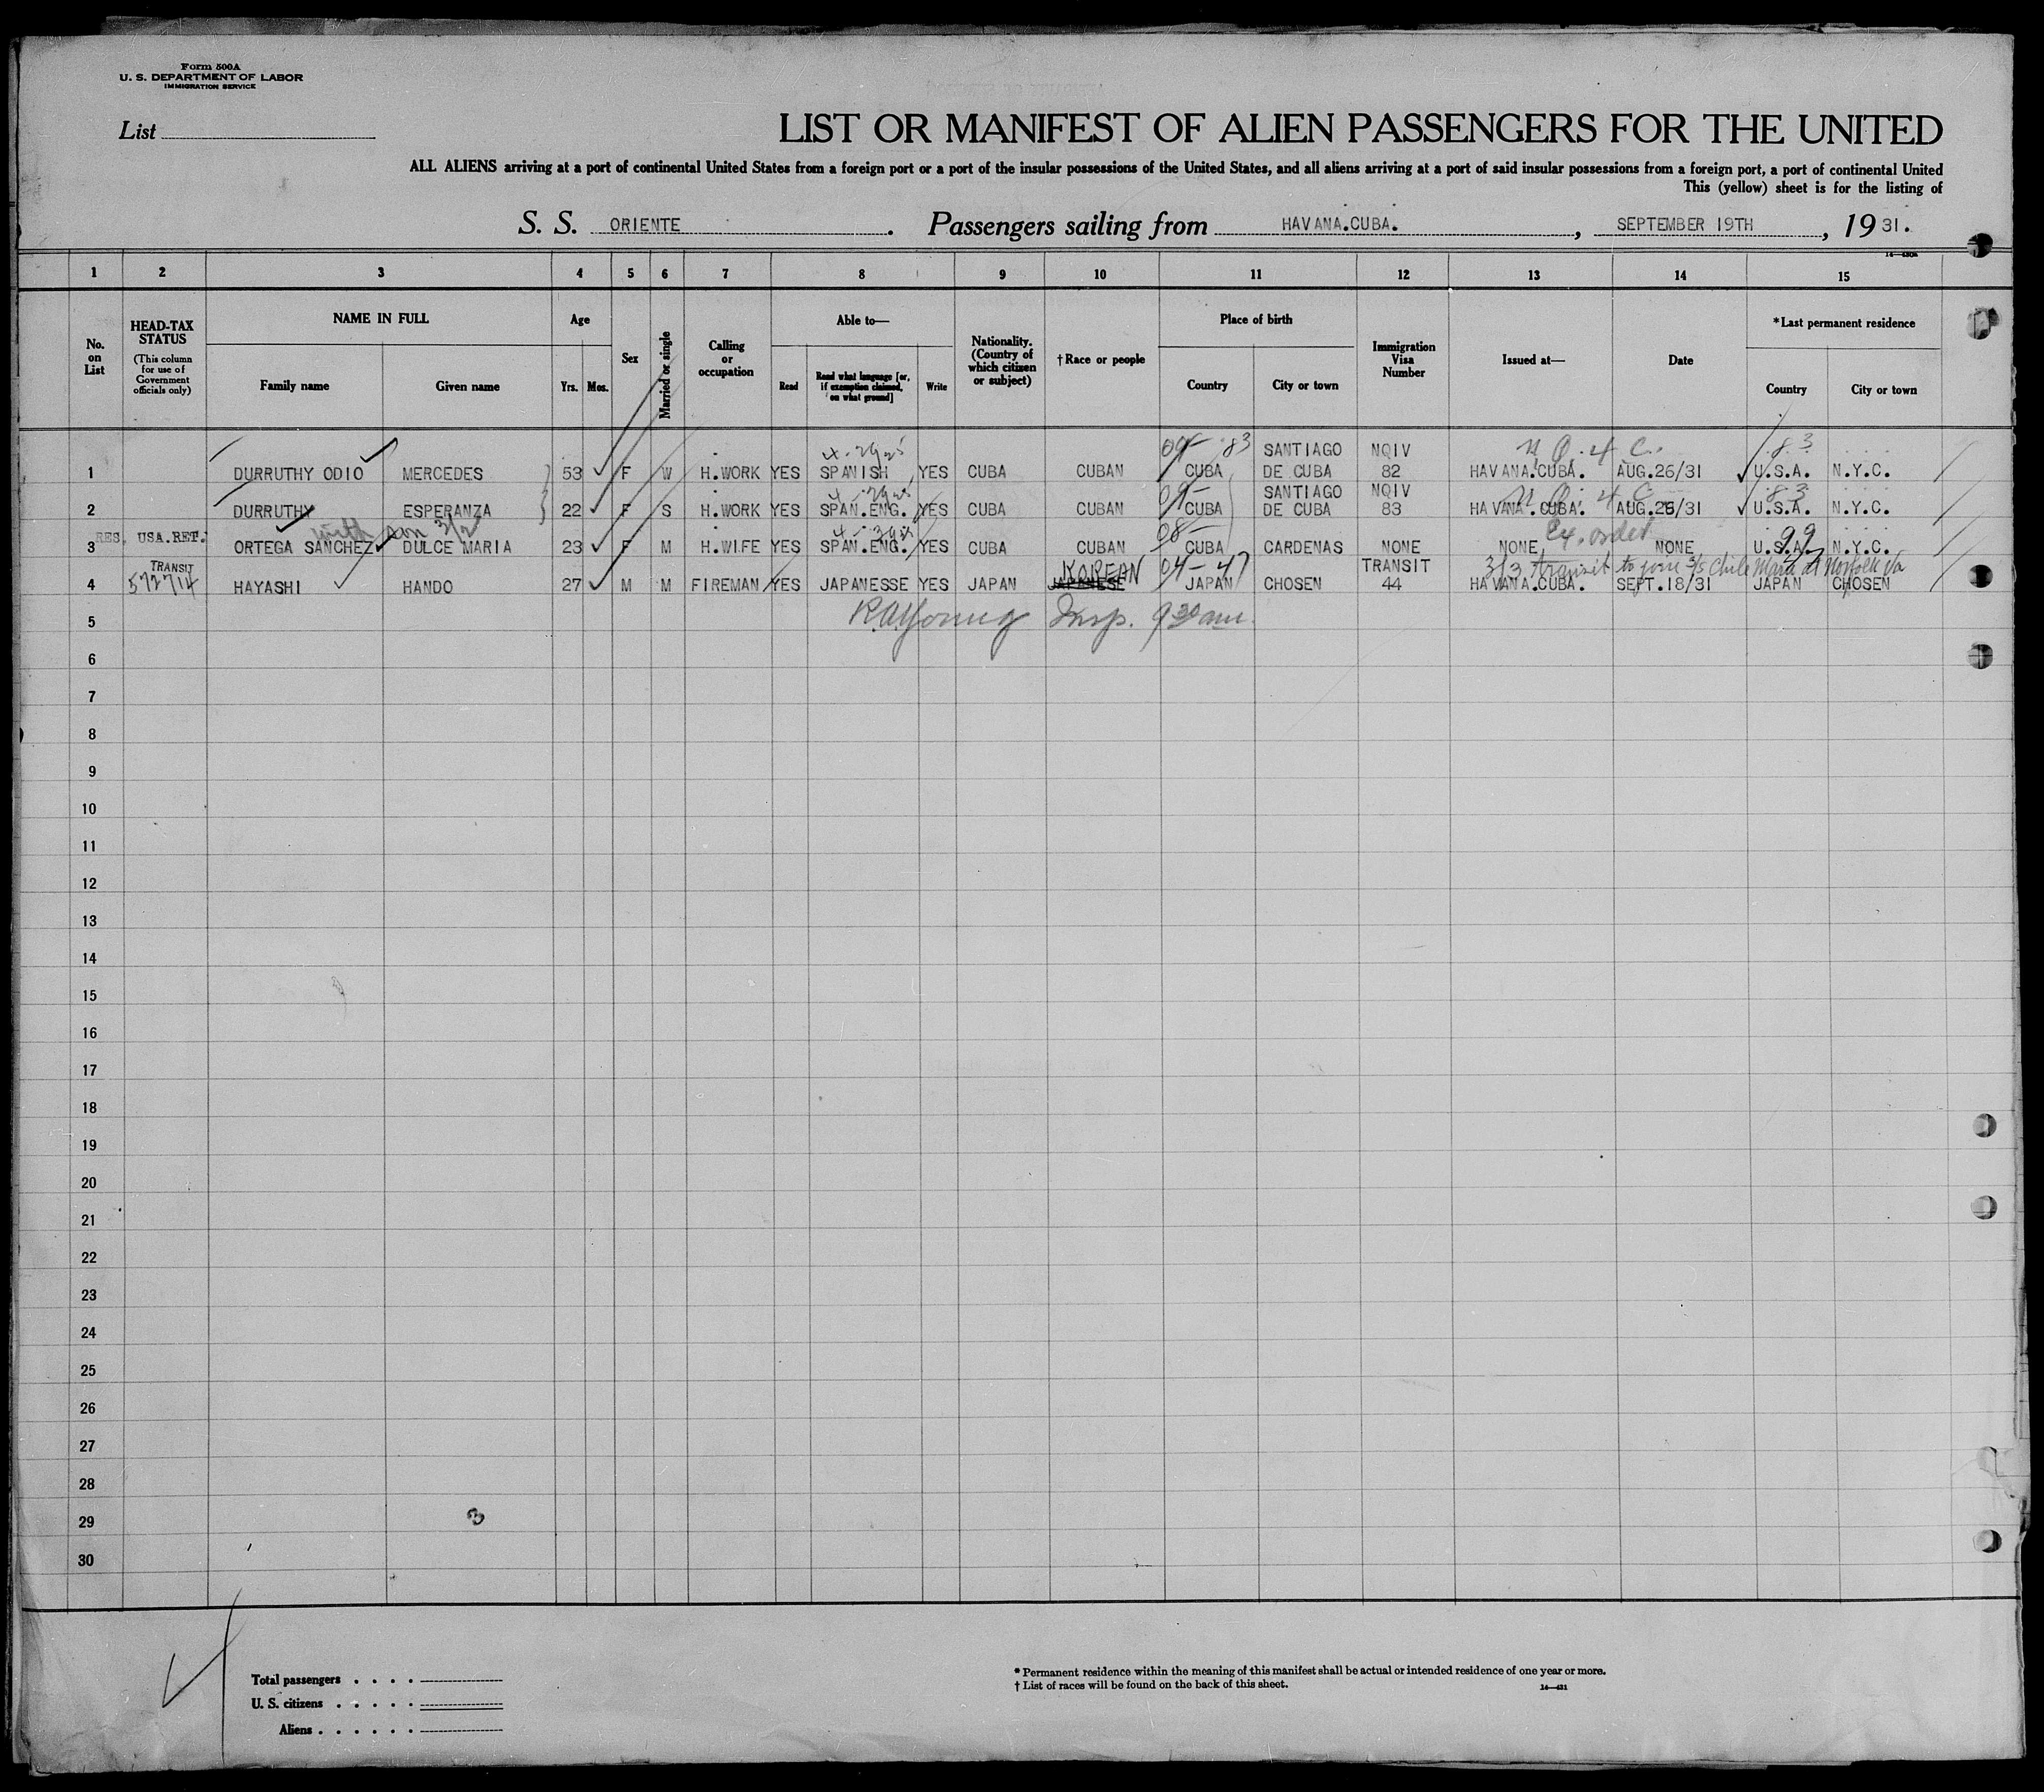 Form 500A
U. S. DEPARTMENT OF LABOR
IMMIGRATION SERVICE
List
LIST OR MANIFEST OF ALIEN PASSENGERS FOR THE UNITED
ALL ALIENS arriving at a port of continental United States from a foreign port or a port of the insular possessions of the United States, and all aliens arriving at a port of said insular possessions from a foreign port, a port of continental United
This (yellow) sheet is for the listing of
S. S. ORIENTE . Passengers sailing from HAVANA.CUBA. , SEPTEMBER 19TH , 19 31.
1 2 3 4 5 6 7 8 9 10 11 12 13 14 15
No. on List
HEAD-TAX STATUS
(This column for use of Government officials only)
NAME IN FULL
Family name Given name
Age
Yrs. Mos.
Sex
Married or single
Calling or occupation
Able to—
Read
Read what language [or, if exemption claimed, on what ground]
Write
Nationality. (Country of which citizen or subject)
† Race or people
Place of birth
Country City or town
Immigration Visa Number
Issued at—
Date
*Last permanent residence
Country City or town
4-2yrs 09- 83 SANTIAGO NQIV N.Q.4 C. 83
1 DURRUTHY ODIO MERCEDES 53 F W H.WORK YES SPANISH YES CUBA CUBAN CUBA DE CUBA 82 HAVANA.CUBA. AUG.26/31 U.S.A. N.Y.C.
4-2yrs 09- SANTIAGO NQIV N.Q.4 C 83
2 DURRUTHY ESPERANZA 22 F S H.WORK YES SPAN.ENG. YES CUBA CUBAN CUBA DE CUBA 83 HAVANA.CUBA. AUG.26/31 U.S.A. N.Y.C.
with son 3/2 4-3yrs 08- Ex. order 99
3 RES. USA.RET. ORTEGA SANCHEZ DULCE MARIA 23 F M H.WIFE YES SPAN.ENG. YES CUBA CUBAN CUBA CARDENAS NONE NONE NONE U.S.A. N.Y.C.
TRANSIT KOREAN 04-47 TRANSIT 3/3 transit to join S/S Chile Maru at Norfolk Va
4 572714 HAYASHI HANDO 27 M M FIREMAN YES JAPANESSE YES JAPAN JAPANESE JAPAN CHOSEN 44 HAVANA.CUBA. SEPT.18/31 JAPAN CHOSEN
5 R.A.Young Insp. 9 30 am.
6
7
8
9
10
11
12
13
14
15
16
17
18
19
20
21
22
23
24
25
26
27
28
29 3
30
Total passengers . . . .
U. S. citizens . . . . .
Aliens . . . . . .
* Permanent residence within the meaning of this manifest shall be actual or intended residence of one year or more.
† List of races will be found on the back of this sheet.
14—421